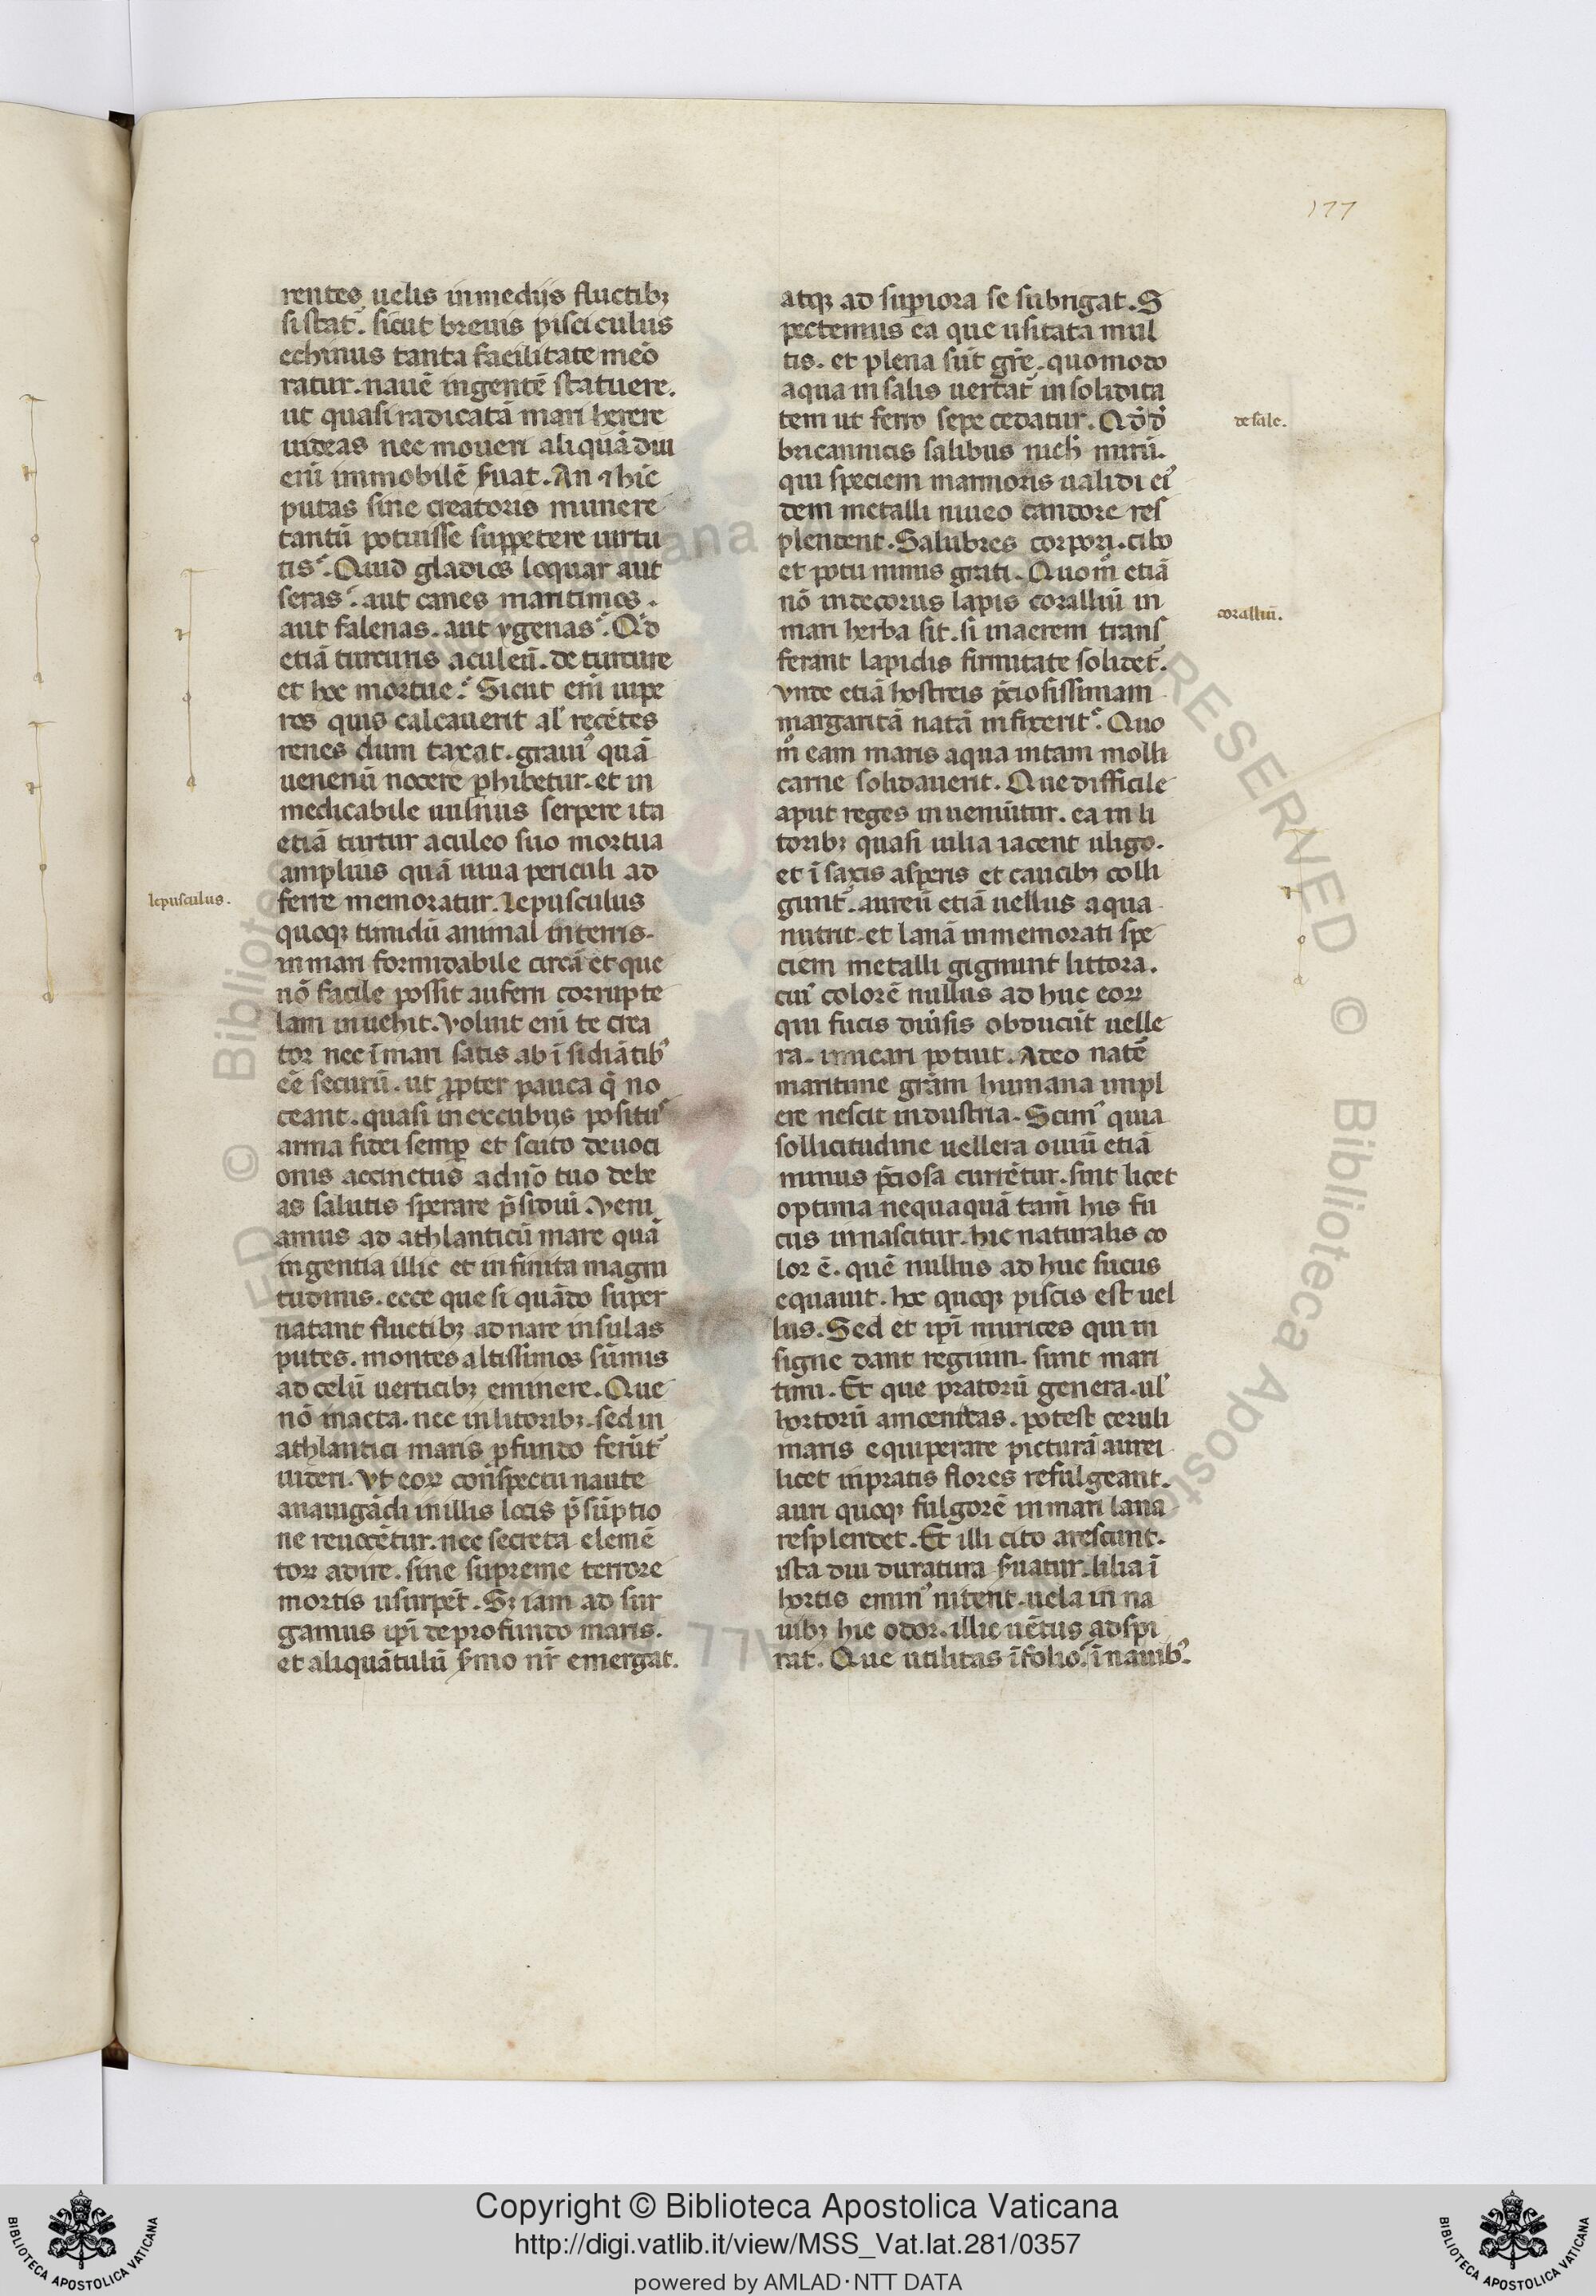 177
rentes uelis in medijs fluctibꝫ
sistat᷑. sicut breuis pisciculus
echinus tanta facilitate meō
ratur. nauē ingentē statuere.
ut quasi radicatā mari herere
uideas nec moueri aliquādiu
eni immobilē ẜuat. An ⁊ hic
putas sine creatoris munere
tantū potuisse suppetere uirtu
tis? Quid gladios loquar aut
seras? aut canes maritimos.
aut falenas. aut ygenas? Qͥd
etiā turturis aculeū. de turture
et hoc mortue? Sicut eni uipe
ros quis calcauerit al᷑ recētes
renes dum taxat. grauiꝰ quā
uenenū nocere ꝓhibetur. et in
medicabile uulnus serpere ita
etiā turtur aculeo suo mortua
amplius quā uiua periculi ad
ferre memoratur. Lepusculus
quoqꝫ timidū animal in terris.
in mari formidabile circā et que
nō facile possit auferri corrupte
lam inuehit. Voluit eni te crea
tor nec ī mari satis ab īsidiātibꝰ
eē securū. ut ꝓpter pauca q̄ no
ceant. quasi in excubijs positꝰ
arma fidei semꝑ et scuto deuoci
onis accinctus a dn̄o tuo debe
as salutis sperare p̄sidiū. Veni
amus ad athlanticū mare quā
ingentia illic et infinita magni
tudinis. cete que si quādo super
natant fluctibꝫ adnare insulas
putes. montes altissimos sūmis
ad celū uerticibꝫ eminere. Que
nō in acta. nec in litoribꝫ. sed in
athlantici maris ꝓfundo ferūt᷑
uideri. Ut eoꝝ conspectu naute
a nauigādi in illis locis p̄sūptio
ne reuocētur. nec secreta elemē
toꝝ adire. sine supreme terrore
mortis usurpēt. Sꝫ iam ad sur
gamus ip̄i de profundo maris.
et aliquātulū ẜmo nr̄ emergat.
atqꝫ ad suꝑiora se subrigat. S
pectemus ea que usitata mul
tis. et plena sūt gr̄e. quomodo
aqua in salis uertat᷑ in solidita
tem ut ferro sepe cedatur. Qd̓ d̓
bricannicis salibus nich̓ mirū.
qui speciem marmoris ualidi eiꝰ
dem metalli niueo candore res
plendent. Salubres corpori. cibo
et potu nimis grati. Quom̊ etiā
nō indecorus lapis coralliū in
mari herba sit. si in aerem trans
ferant lapidis firmitate solidet᷑.
Vnde etiā hostreis p̄ciosissimam
margaritā natā infixerit? Quo
m̊ eam maris aqua in tam molli
carne solidauerit. Que difficile
aput reges inueniūtur. ea in li
toribꝫ quasi uilia iacent uligo.
et ī saxis asperis et caucibꝫ colli
gunt᷑. aureū etiā uellus aqua
nutrit. et lanā in memorati spe
ciem metalli gignunt littora.
cuiꝰ colorē nullus ad huc eoꝝ
qui fucis diu᷑sis obducūt uelle
ra. imitari potuit. Adeo natē
maritime gr̄am humana impl
ere nescit industria. Scimꝰ quia
sollicitudine uellera ouiū etiā
minus p̄ciosa currētur. sint licet
optima nequaquā tam̄ his fu
cus innascitur. hic naturalis co
lor ē. quē nullus ad huc fucus
equauit. hoc quoqꝫ piscis est uel
lus. Sed et ip̄i murices qui in
signe dant regium. sunt mari
timi. Et que pratorū genera. ul᷑
hortorū amoenitas. potest ceruli
maris equiperare picturā aurei
licet in pratis flores refulgeant.
auri quoqꝫ fulgorē in mari lana
resplendet. Et illi cito arescunt.
ista diu duratura ẜuatur. lilia ī
hortis eminꝰ nitent. uela in na
uibꝫ hic odor. illic uētus adspi
rat. Que utilitas ī folio? ī nauibꝰ.
lepusculus.
de sale.
coralliū.
Copyright © Biblioteca Apostolica Vaticana
http://digi.vatlib.it/view/MSS_Vat.lat.281/0357
powered by AMLAD·NTT DATA
BIBLIOTECA APOSTOLICA VATICANA
BIBLIOTECA APOSTOLICA VATICANA